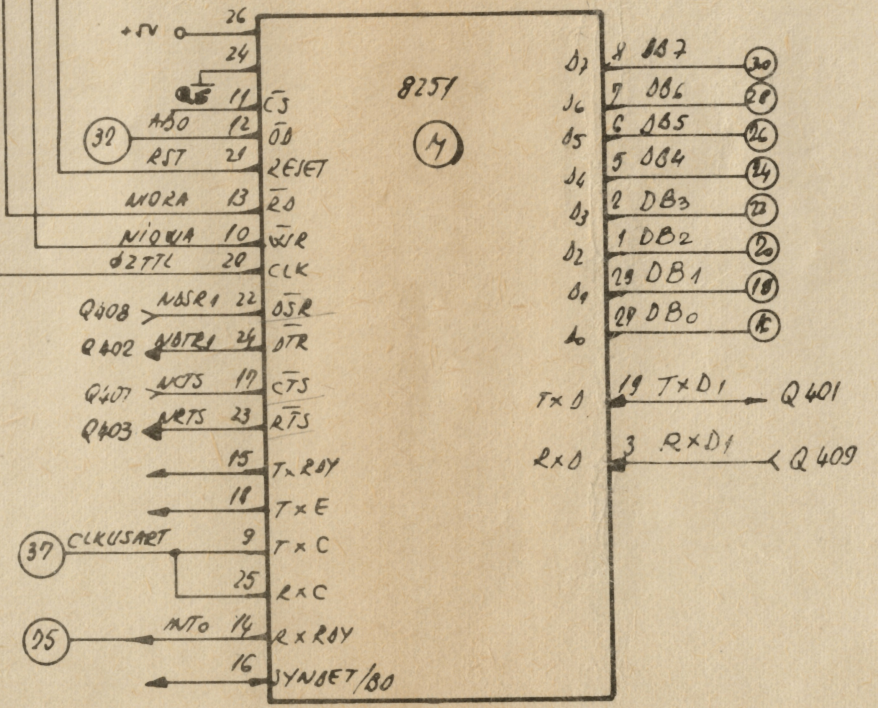 +5V 26
24
8251
M
11 CS
32 AB0 12 OD
RST 21 RESET
NIORA 13 RD
NIOWA 10 WR
ϕ2TTL 20 CLK
Q408 NDSR1 22 DSR
Q402 NDTR1 24 DTR
Q407 NCTS 17 CTS
Q403 NRTS 23 RTS
15 TxRDY
18 TxE
37 CLKUSART 9 TxC
25 RxC
INT0 14 RxRDY
16 SYNDET/BD
D7 8 DB7 30
D6 7 DB6 28
D5 6 DB5 26
D4 5 DB4 24
D3 2 DB3 22
D2 1 DB2 20
28 DB1 18
D0 27 DB0
TxD 19 TxD1 Q401
RxD 3 RxD1 Q409